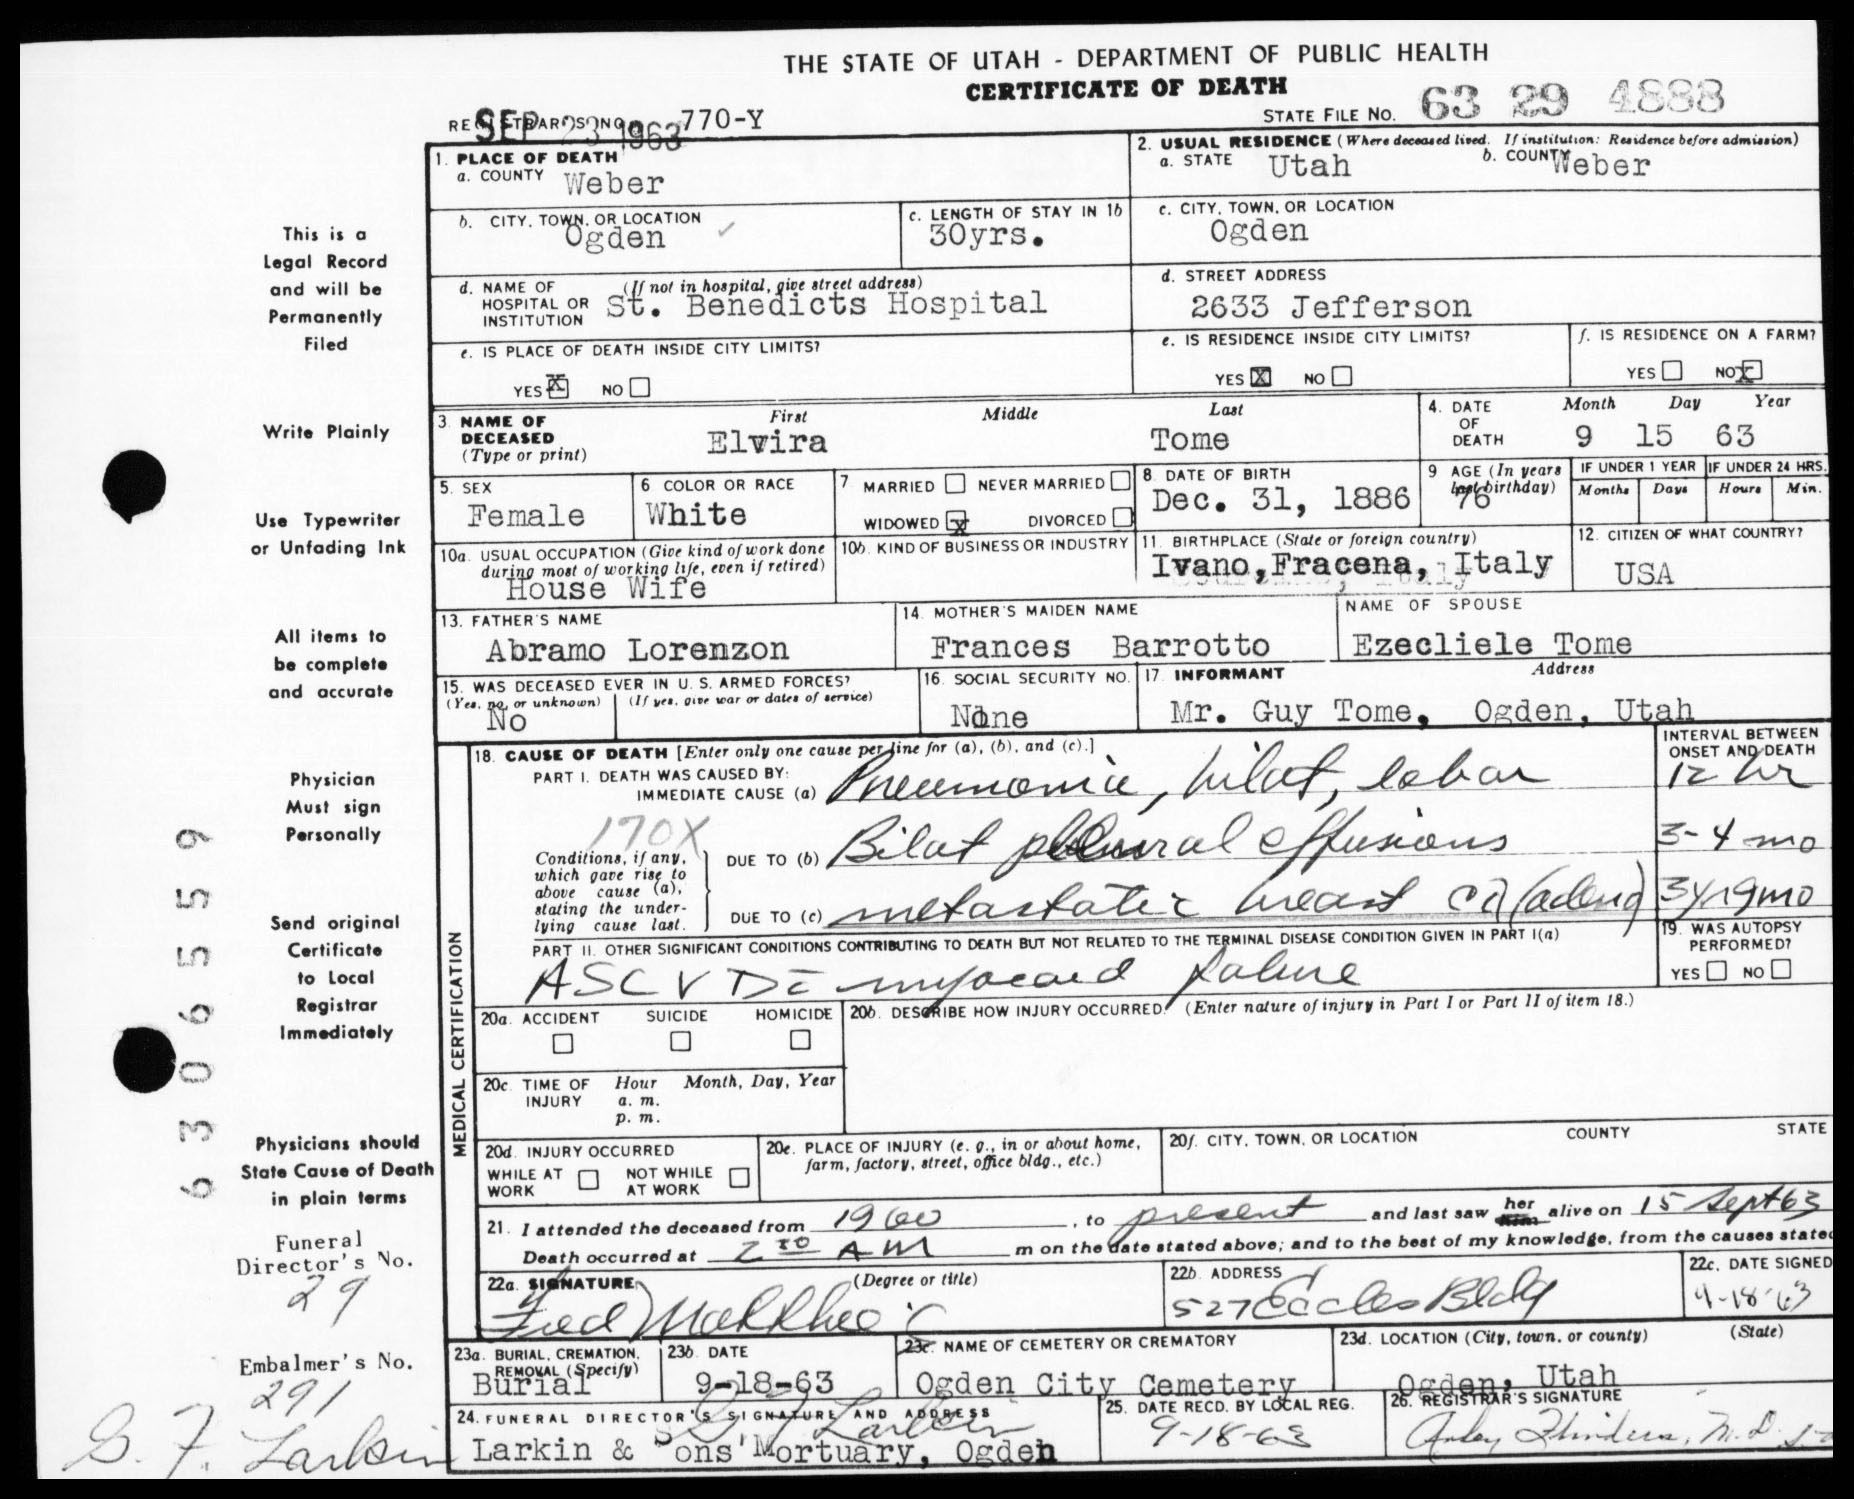 THE STATE OF UTAH - DEPARTMENT OF PUBLIC HEALTH
CERTIFICATE OF DEATH
REGISTRAR'S NO. 770-Y
SEP 23 1963
STATE FILE NO. 63 29 4888
1. PLACE OF DEATH
a. COUNTY Weber
2. USUAL RESIDENCE (Where deceased lived. If institution: Residence before admission)
a. STATE Utah b. COUNTY Weber
b. CITY, TOWN, OR LOCATION Ogden
c. LENGTH OF STAY IN 1b 30yrs.
c. CITY, TOWN, OR LOCATION Ogden
d. NAME OF HOSPITAL OR INSTITUTION (If not in hospital, give street address) St. Benedicts Hospital
d. STREET ADDRESS 2633 Jefferson
e. IS PLACE OF DEATH INSIDE CITY LIMITS?
YES X NO
e. IS RESIDENCE INSIDE CITY LIMITS?
YES X NO
f. IS RESIDENCE ON A FARM?
YES NO X
3. NAME OF DECEASED (Type or print)
First Middle Last
Elvira Tome
4. DATE OF DEATH
Month Day Year
9 15 63
5. SEX Female
6 COLOR OR RACE White
7 MARRIED NEVER MARRIED
WIDOWED X DIVORCED
8. DATE OF BIRTH Dec. 31, 1886
9 AGE (In years last birthday) 76
IF UNDER 1 YEAR Months Days
IF UNDER 24 HRS. Hours Min.
10a. USUAL OCCUPATION (Give kind of work done during most of working life, even if retired) House Wife
10b. KIND OF BUSINESS OR INDUSTRY
11. BIRTHPLACE (State or foreign country) Ivano, Fracena, Italy
12. CITIZEN OF WHAT COUNTRY? USA
13. FATHER'S NAME Abramo Lorenzon
14. MOTHER'S MAIDEN NAME Frances Barrotto
NAME OF SPOUSE Ezecliele Tome
15. WAS DECEASED EVER IN U. S. ARMED FORCES?
(Yes, no, or unknown) (If yes, give war or dates of service)
No
16. SOCIAL SECURITY NO. None
17. INFORMANT Address
Mr. Guy Tome, Ogden, Utah
MEDICAL CERTIFICATION
18. CAUSE OF DEATH [Enter only one cause per line for (a), (b), and (c).]
INTERVAL BETWEEN ONSET AND DEATH
PART I. DEATH WAS CAUSED BY:
IMMEDIATE CAUSE (a) Pneumonia, bilat, lobar 12 hr
170X
Conditions, if any, which gave rise to above cause (a), stating the underlying cause last.
DUE TO (b) Bilat pleural effusions 3-4 mo
DUE TO (c) metastatic breast ca (adeno) 3yr9mo
PART II. OTHER SIGNIFICANT CONDITIONS CONTRIBUTING TO DEATH BUT NOT RELATED TO THE TERMINAL DISEASE CONDITION GIVEN IN PART I(a)
ASCVD c̄ myocard failure
19. WAS AUTOPSY PERFORMED?
YES NO
20a. ACCIDENT SUICIDE HOMICIDE
20b. DESCRIBE HOW INJURY OCCURRED. (Enter nature of injury in Part I or Part II of item 18.)
20c. TIME OF INJURY Hour Month, Day, Year
a. m.
p. m.
20d. INJURY OCCURRED
WHILE AT WORK NOT WHILE AT WORK
20e. PLACE OF INJURY (e. g., in or about home, farm, factory, street, office bldg., etc.)
20f. CITY, TOWN, OR LOCATION COUNTY STATE
21. I attended the deceased from 1960, to present and last saw her him alive on 15 Sept 63
Death occurred at 2:50 AM m on the date stated above; and to the best of my knowledge, from the causes stated
22a. SIGNATURE (Degree or title)
Fred
22b. ADDRESS 527 Eccles Bldg
22c. DATE SIGNED 9-18-63
23a. BURIAL, CREMATION, REMOVAL (Specify) Burial
23b. DATE 9-18-63
23c. NAME OF CEMETERY OR CREMATORY Ogden City Cemetery
23d. LOCATION (City, town, or county) (State)
Ogden, Utah
24. FUNERAL DIRECTOR'S SIGNATURE AND ADDRESS
G. F. Larkin
Larkin & Sons' Mortuary, Ogden
25. DATE RECD. BY LOCAL REG. 9-18-63
26. REGISTRAR'S SIGNATURE
M.D.
This is a
Legal Record
and will be
Permanently
Filed
Write Plainly
Use Typewriter
or Unfading Ink
All items to
be complete
and accurate
Physician
Must sign
Personally
Send original
Certificate
to Local
Registrar
Immediately
Physicians should
State Cause of Death
in plain terms
Funeral
Director's No.
29
Embalmer's No.
291
G. F. Larkin
630655 9